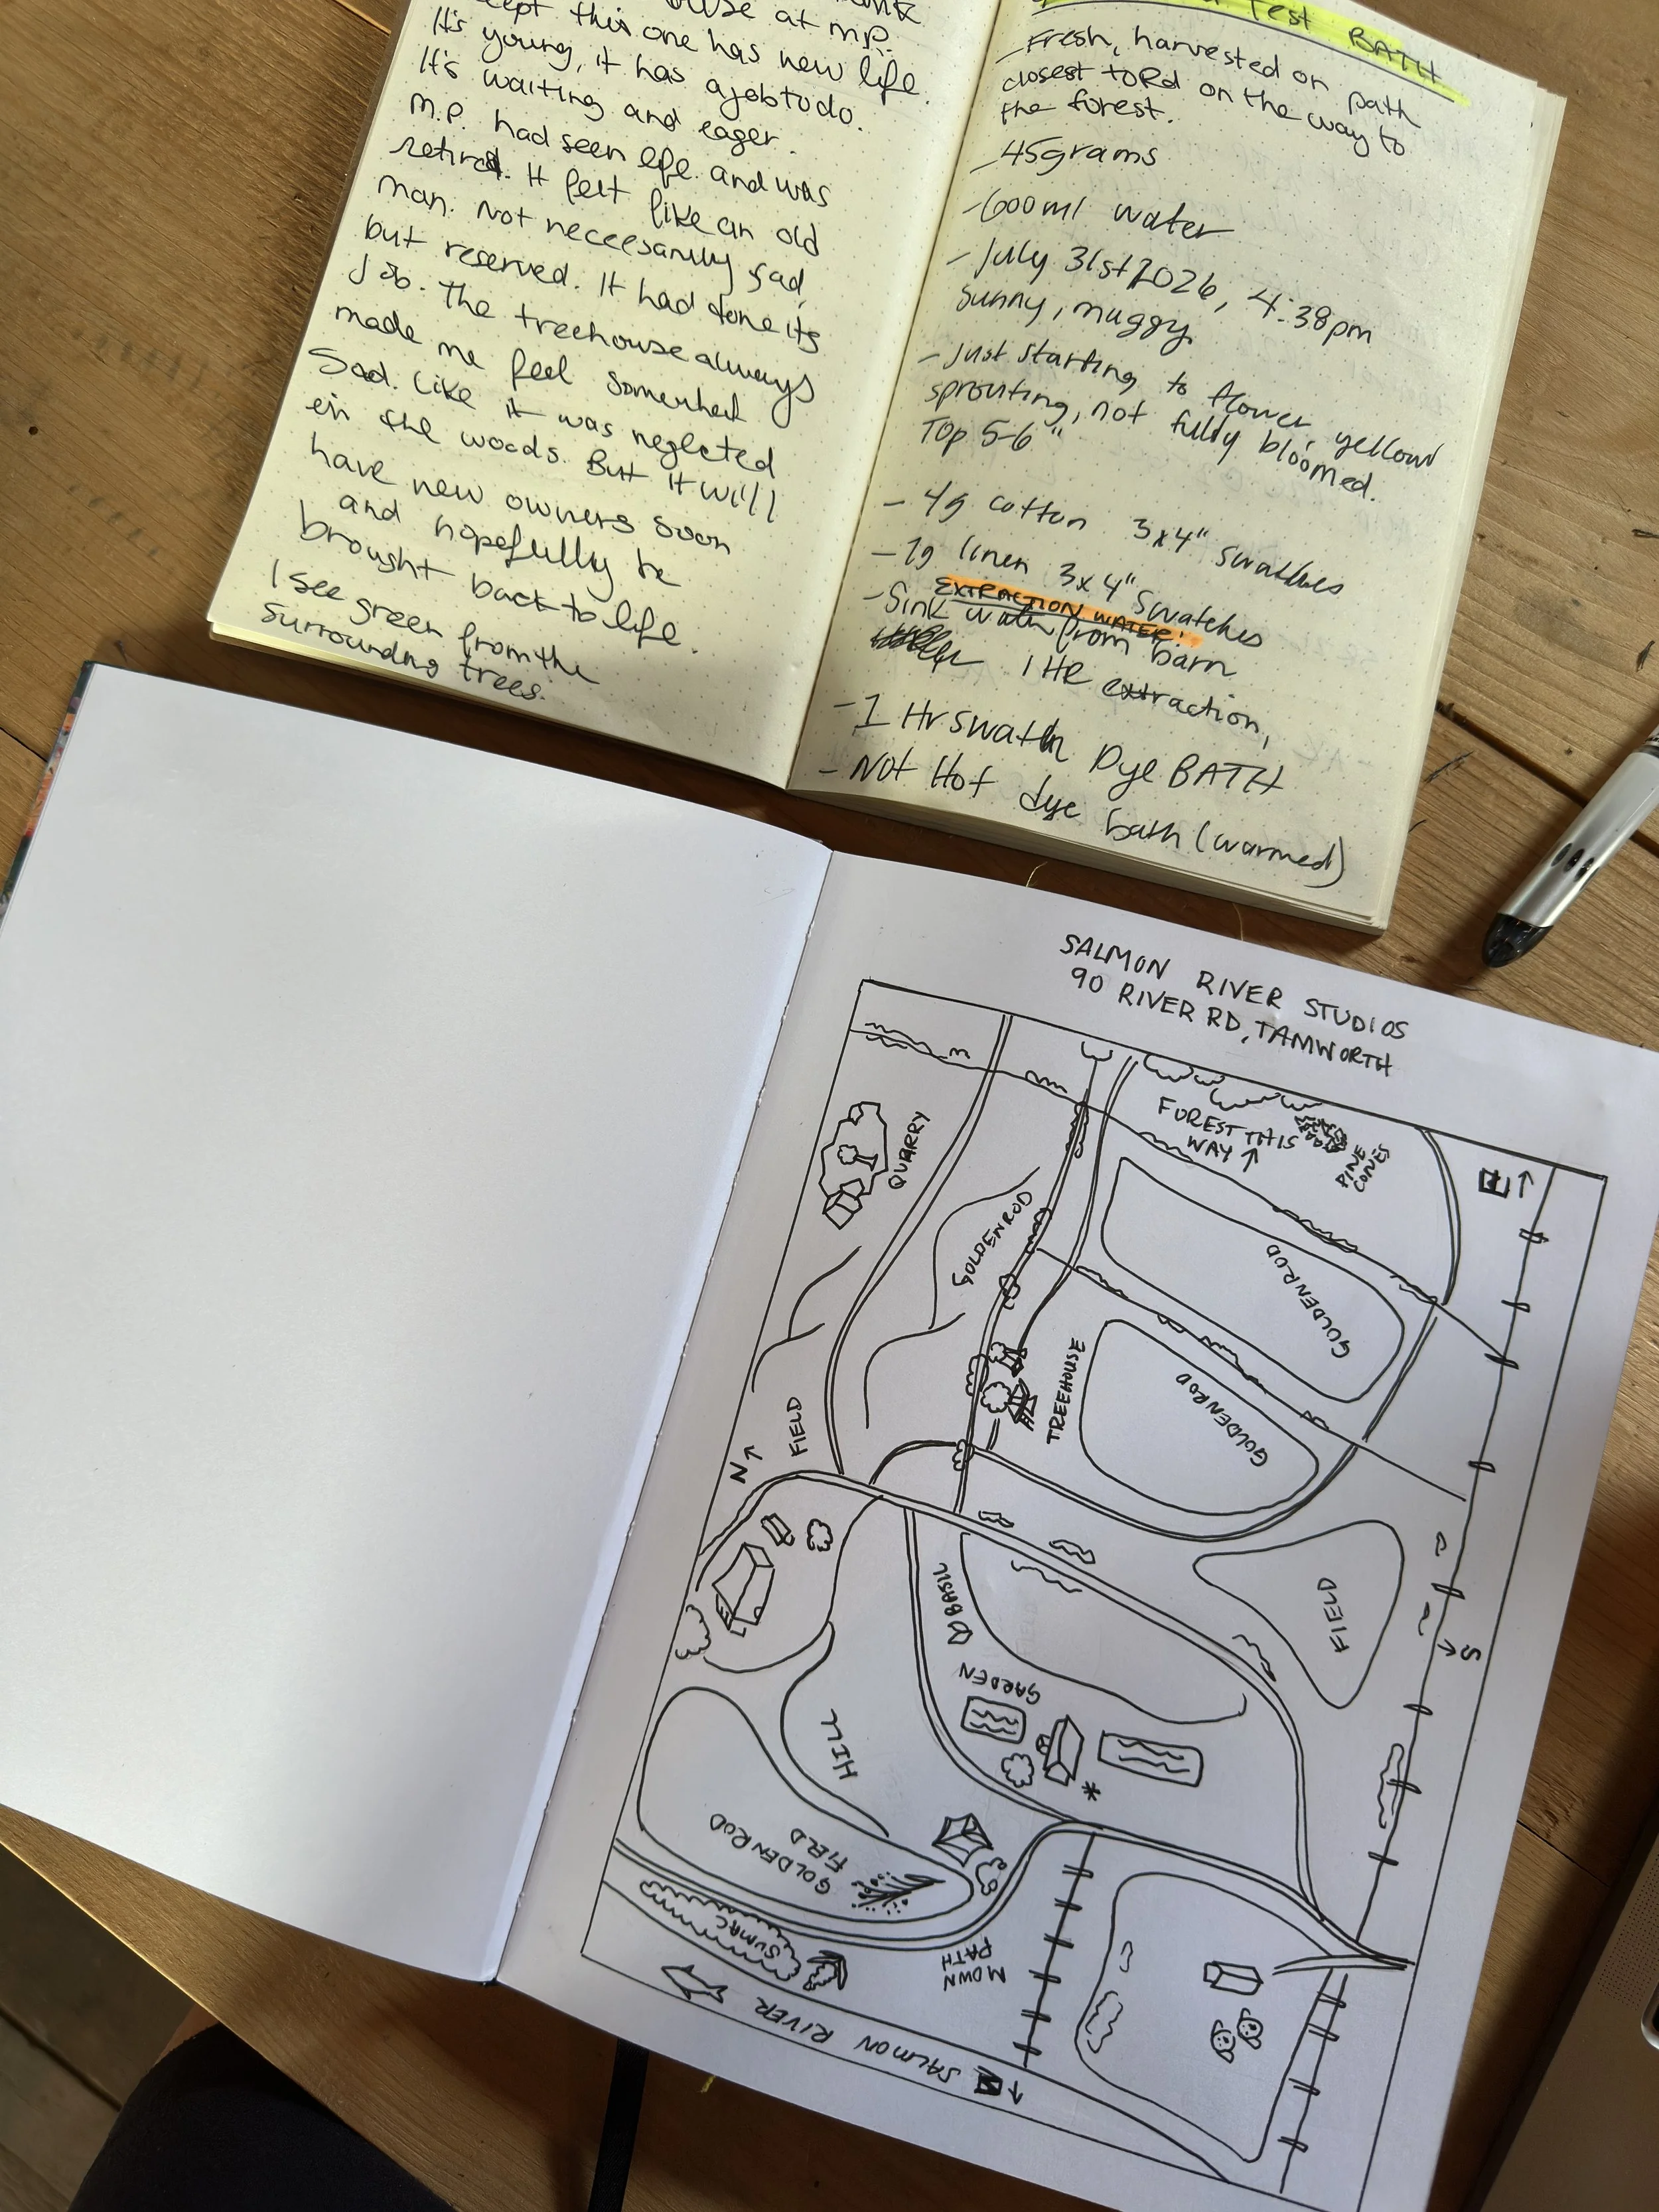 cept this one has new life.
It's young, it has a job to do.
It's waiting and eager.
M.P. had seen life and was
retired. It felt like an old
man. Not neccesarily sad,
but reserved. It had done its
job. The treehouse always
made me feel somewhat
sad. Like it was neglected
in the woods. But it will
have new owners soon
and hopefully be
brought back to life.
I see green from the
surrounding trees.
Test BATH
- Fresh, harvested on path
closest to Rd on the way to
the forest.
- 45grams
- 600ml water
- July 31st 2026, 4:38pm
sunny, muggy
- Just starting to flower, yellow
sprouting, not fully bloomed.
Top 5-6"
- 4g cotton 3x4" swatches
- 7g linen 3x4" swatches
EXTRACTION WATER:
- Sink water from barn
1 HR extraction,
- 1 Hr swatch Dye BATH
- Not Hot dye bath (warmed)
SALMON RIVER STUDIOS
90 RIVER RD, TAMWORTH
FOREST THIS
WAY ↑
PINE
CONES
E ↑
QUARRY
GOLDENROD
GOLDENROD
TREEHOUSE
GOLDENROD
FIELD
N ↑
BASIL
FIELD
S
GARDEN
HILL
*
GOLDENROD
FIELD
SUMAC
MOWN
PATH
SALMON RIVER